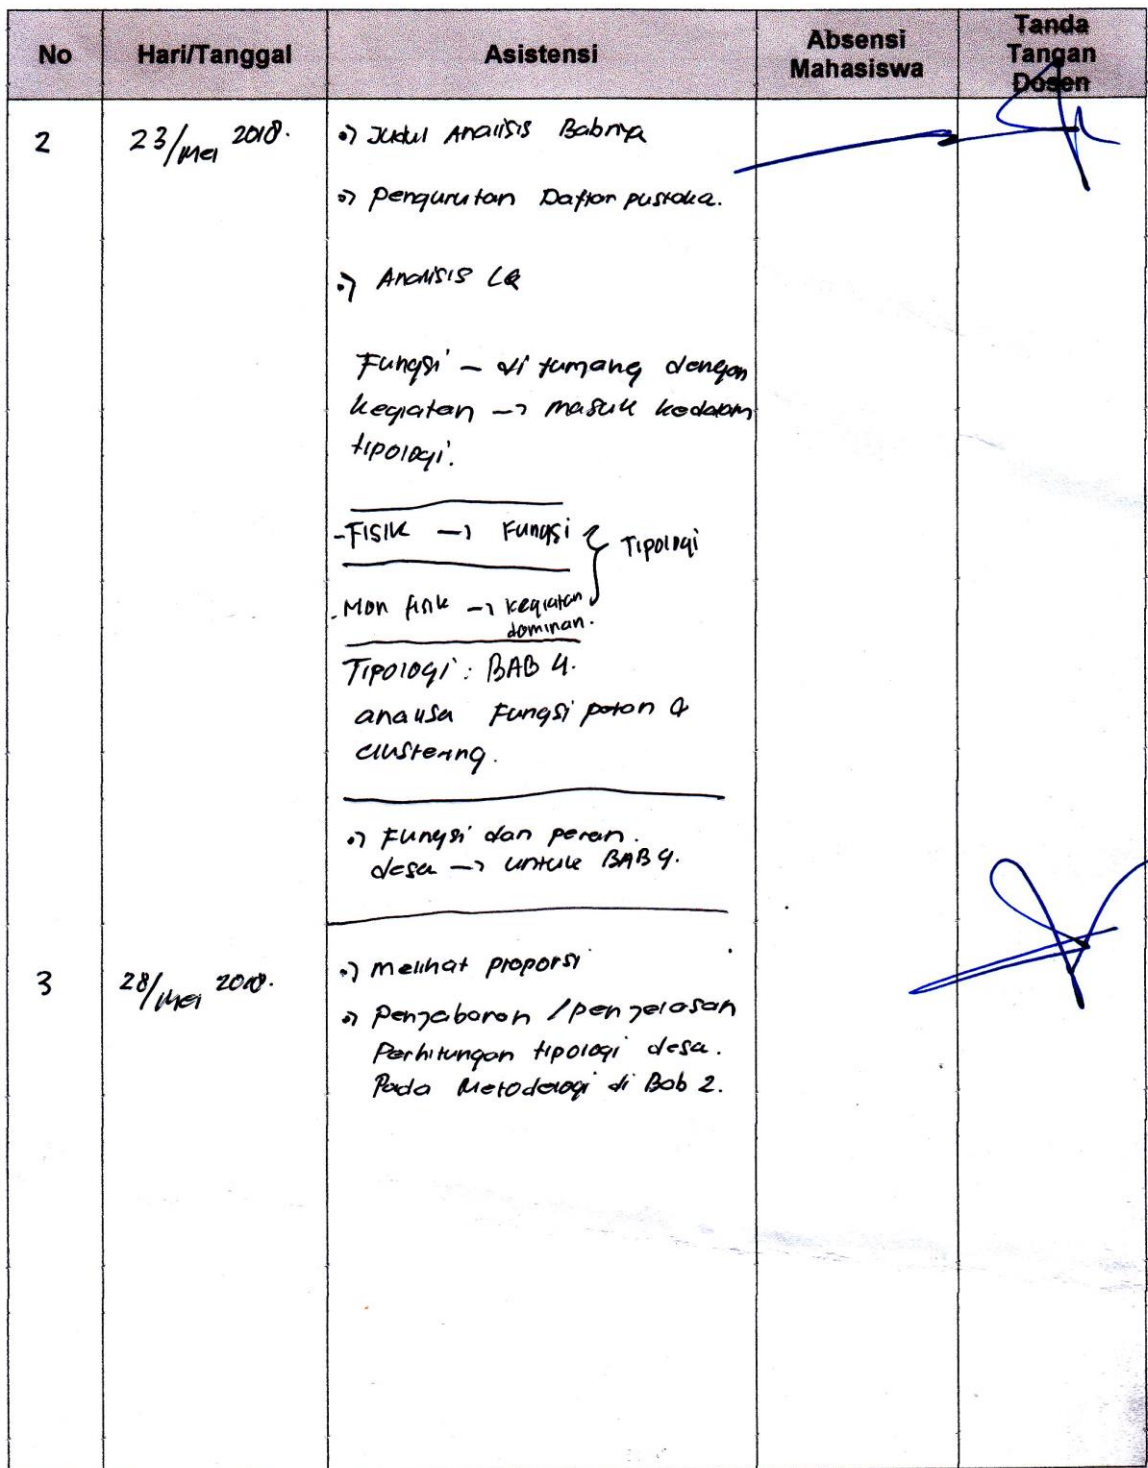 No Hari/Tanggal Asistensi Absensi Mahasiswa Tanda Tangan Dosen
2 23/Mei 2018. •) Judul Analisis Babnya
•) Pengurutan Daftar pustaka.
•) Analisis LQ
Fungsi – di tumang dengan
kegiatan → masuk kedalam
tipologi.
- FISIK → Fungsi } Tipologi
- Non fisik → kegiatan
dominan.
Tipologi : BAB 4.
analisa Fungsi &
clustering.
•) Fungsi dan peran.
desa → untuk BAB 4.
3 28/Mei 2018. •) melihat proporsi
•) Penjabaran / penjelasan
Perhitungan tipologi desa.
Pada Metodologi di Bab 2.